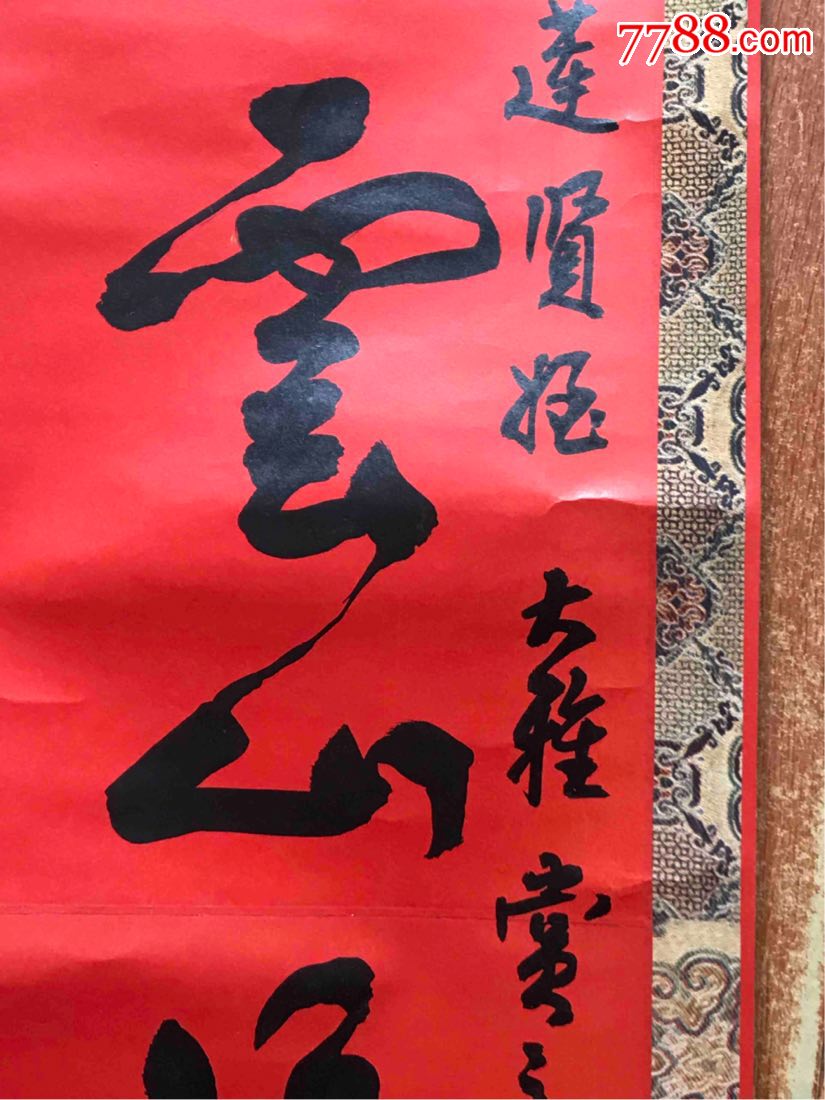 7788.com
莲贤侄大雅赏之
雲山